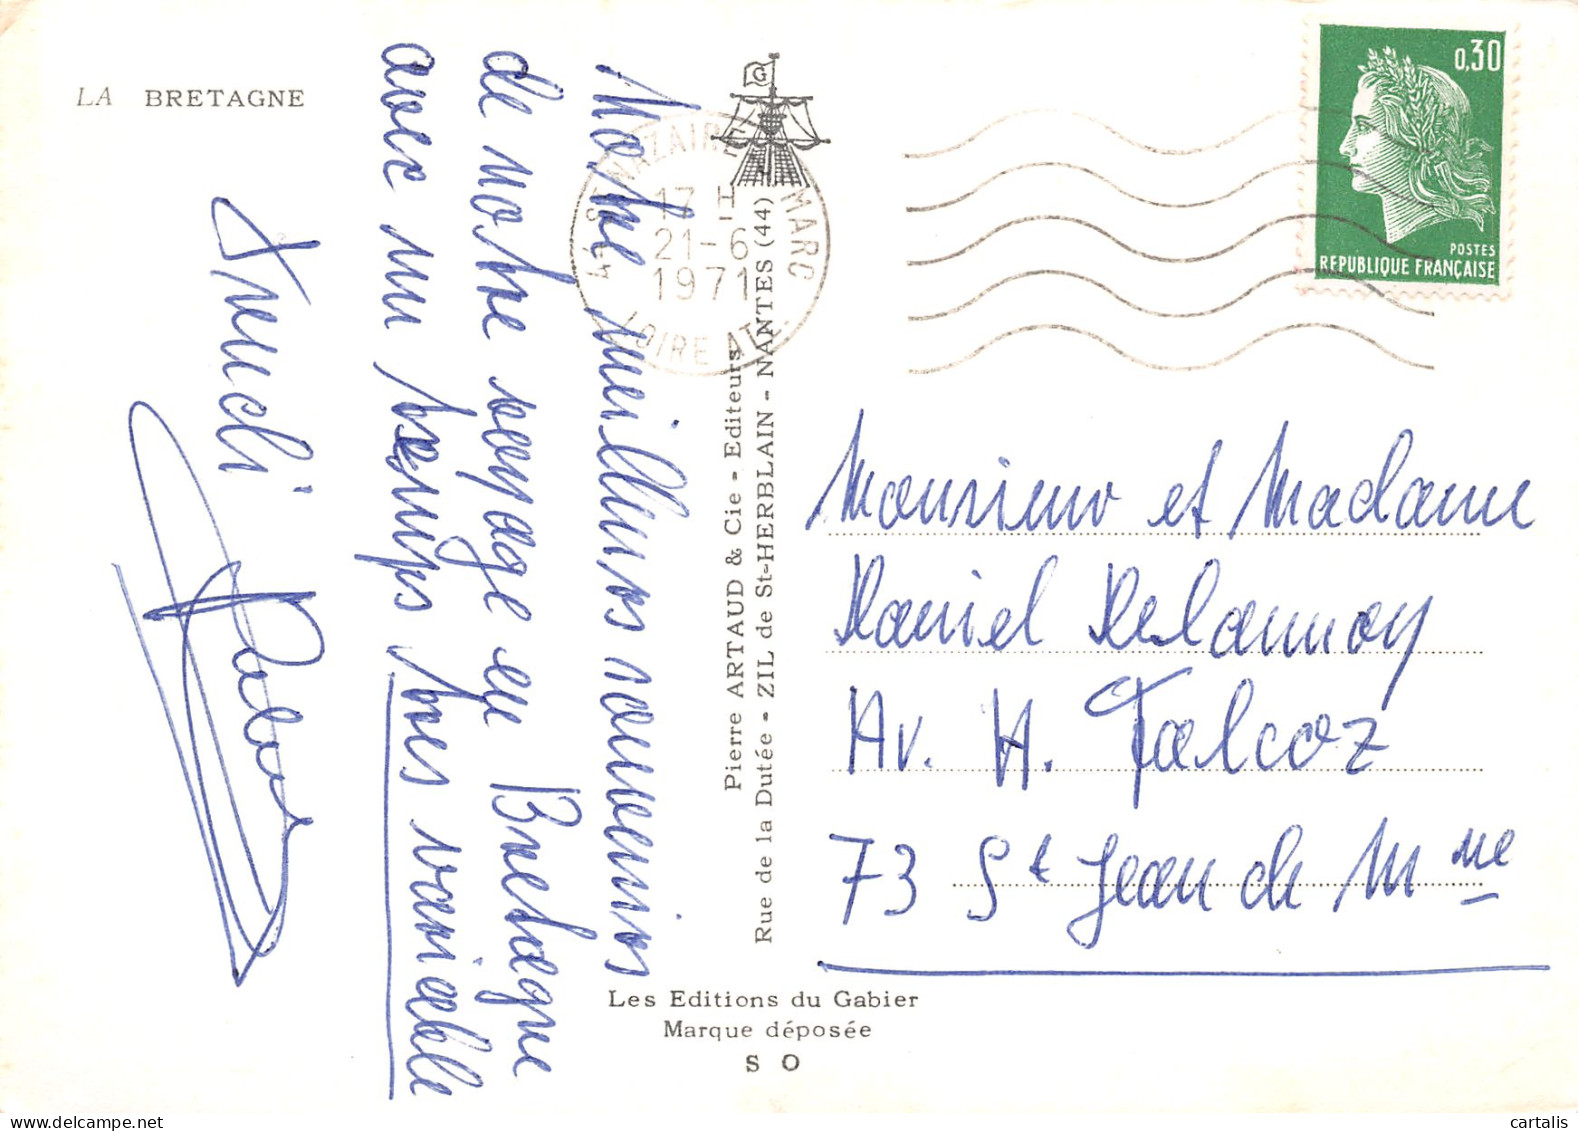 LA BRETAGNE
Notre meilleurs souvenirs
de notre voyage en Bretagne
avec un temps très variable
G
44 ST NAZAIRE MARC
17 H
21-6
1971
LOIRE ATL.
Pierre ARTAUD & Cie - Editeurs
Rue de la Dutée - ZIL de St-HERBLAIN - NANTES (44)
Les Editions du Gabier
Marque déposée
S O
0,30
POSTES
REPUBLIQUE FRANÇAISE
Monsieur et Madame
Daniel Delannoy
Av. H. Falcoz
73 St Jean de Mne
cartalis